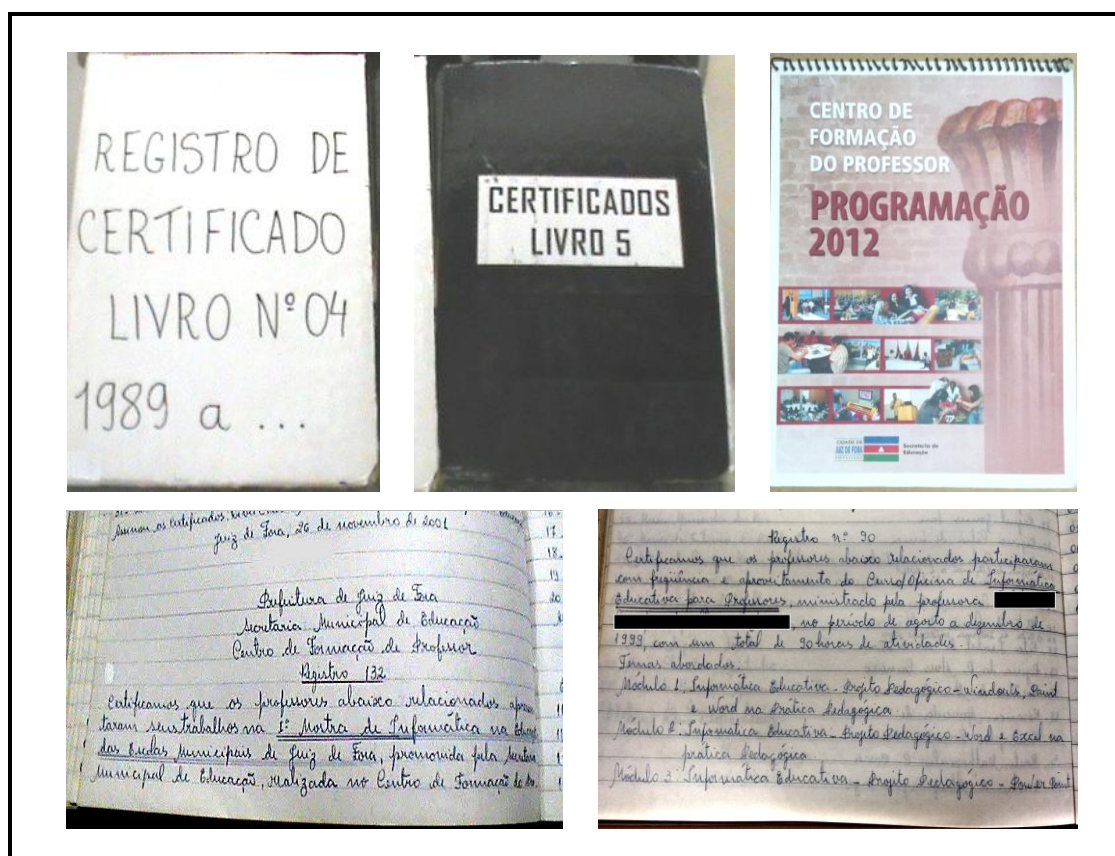 REGISTRO DE
CERTIFICADO
LIVRO Nº 04
1989 a ...
CERTIFICADOS
LIVRO 5
CENTRO DE
FORMAÇÃO
DO PROFESSOR
PROGRAMAÇÃO
2012
JUIZ DE FORA
Secretaria de
Educação
assinam os certificados.
Juiz de Fora, 26 de novembro de 2001
17
18
19
20
Prefeitura de Juiz de Fora
Secretaria Municipal de Educação
Centro de Formação do Professor
Registro 132
Certificamos que os professores abaixo relacionados apresen
taram seus trabalhos na 1ª Mostra de Informática na Educação
das Escolas Municipais de Juiz de Fora, promovida pela Secretaria
Municipal de Educação, realizada no Centro de Formação do
Registro nº 90
Certificamos que os professores abaixo relacionados participaram
com freqüência e aproveitamento do Curso/Oficina de Informática
Educativa para Professores, ministrado pela professora
, no período de agosto a dezembro de
1999, com um total de 90 horas de atividades.
Temas abordados.
Módulo 1: Informática Educativa - Projeto Pedagógico - Windows, Paint
e Word na Prática Pedagógica.
Módulo 2: Informática Educativa - Projeto Pedagógico - Word e Excel na
prática Pedagógica
Módulo 3: Informática Educativa - Projeto Pedagógico - Power Point